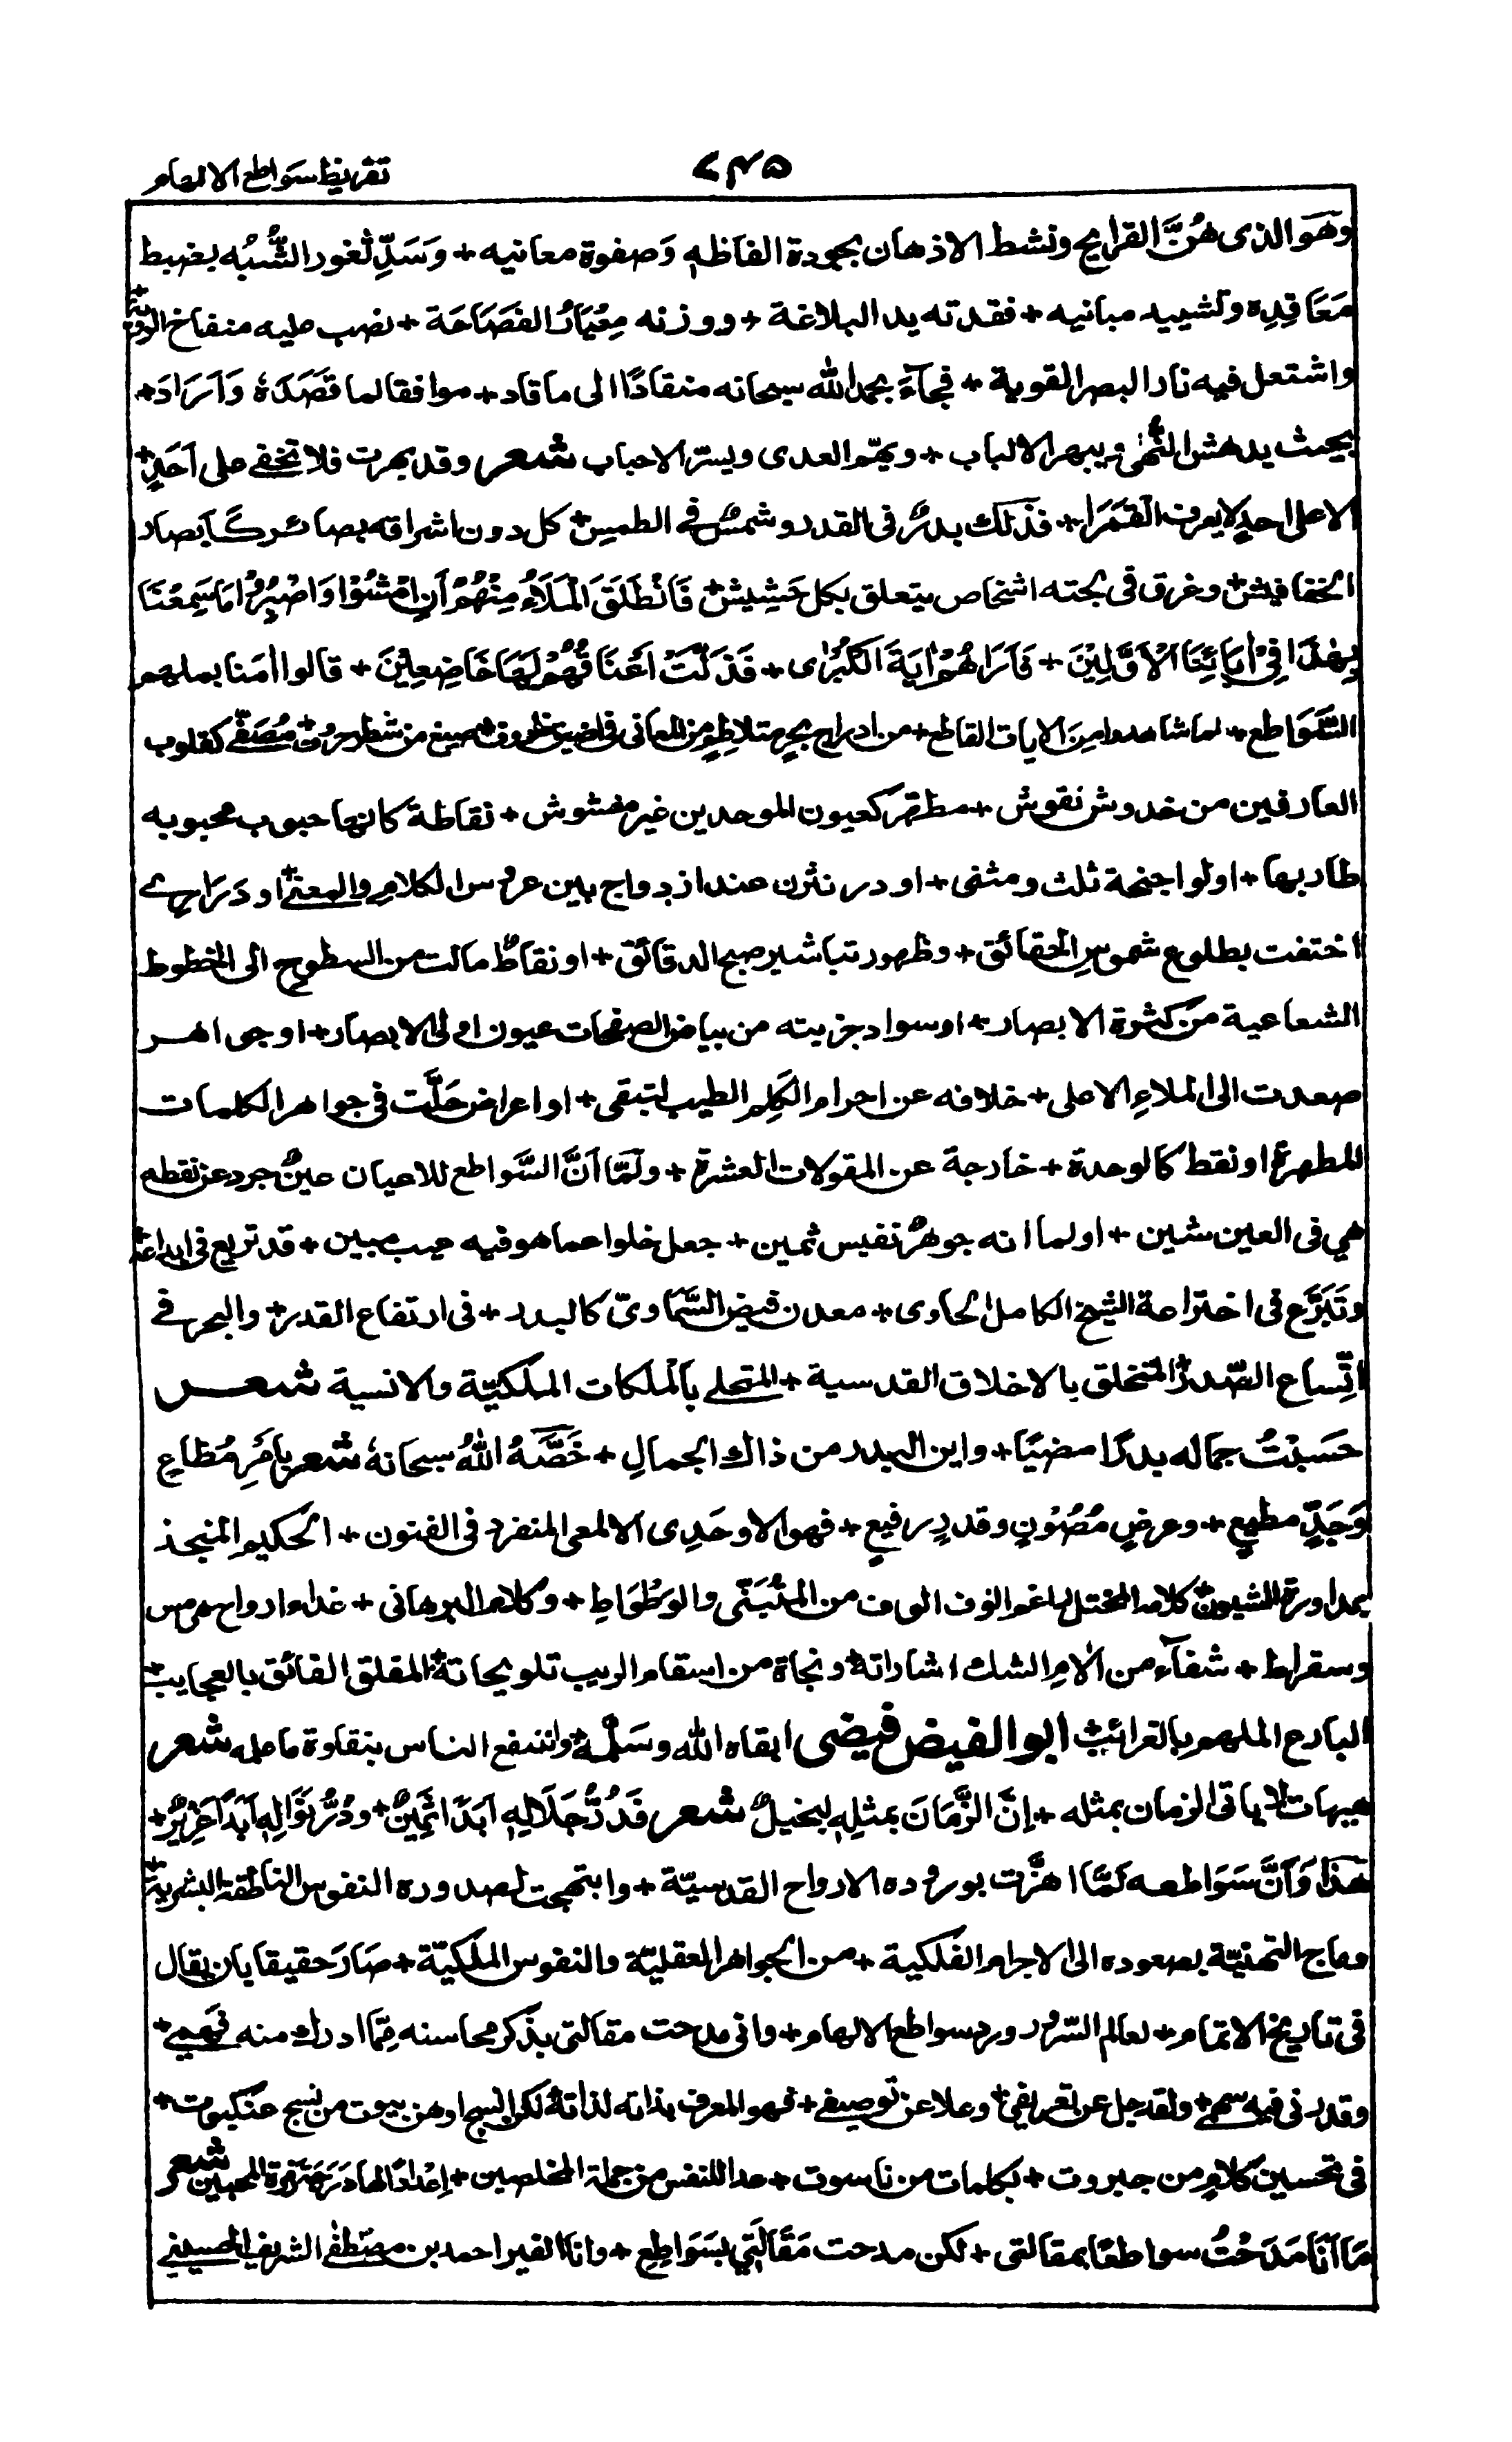 تقریظ سواطع الالهام
۷۴۵
وهَوَ الذى هُنَّ القرايح ونشط الاذهان بجودة الفاظهٖ وَصفوة معانيه + وَسَدِّ ثغور الشُّبُه بضبط
مَعَاقِدِه وتشييد مبانيه + فقدته يد البلاغة + ووزنه مِعْيَارُ الفَصَاحَة + نصب عليه منفاخ الروية
واشتعل فيه نار البصر القوية + فجآءَ بحمد الله سبحانه منقادًا الى ما قاد + موافقا لما قَصَدَهٗ وَاَرَادَ +
بحيث يدهش النُّهٰى ويبهر الالباب + ويهمّ العدى ويسرّ الاحباب شعر وقد بهرت فلا تخفى على اَحَدٍ +
الا على احدٍ لا يعرف القَمَرَا + فذلك بدرٌ فى القدر وشمسٌ فى الطمس + كل دون اشراقه بصائر كَاَبصار
الخفافيش + وغرق فى لجته اشخاص يتعلق بكل حَشِيشٍ + فَانْطَلَقَ الْمَلَاُ مِنْهُمْ اَنِ امْشُوْا وَاصْبِرُوْا مَا سَمِعْنَا
بِهٰذَا فِىْ اٰبَائِنَا الْاَوَّلِيْنَ + فَاَرَاهُمْ اٰيَةَ الْكُبْرٰى + فَذَلَّتْ اَعْنَاقُهُمْ لَهَا خَاضِعِيْنَ + قالوا اٰمَنا بملهم
السَّوَاطع + لما شاهدوا مِنَ الايات القاطع + من ادراج بحرٍ متلاطمٍ من المعانى فى اضيق ظروف + صيغ من شطر حروف + مُصَفّى كقلوب
العارفين من خدوش نقوش + مطهّر كعيون الموحدين غير مغشوش + نقاطة كانها حبوب محبوبه
طار بها + اولوا اجنحة ثلث ومثنى + او درر نثرن عند ازدواج بين عروس الكلام والمعنى + او دَرَارِى
اختفت بطلوع شموسِ الحقائق + وظهور تباشير صبح الدقائق + او نقاطٌ مالت من السطوح الى الخطوط
الشعاعية من كثرة الابصار + او سواد جزيته من بياض الصفحات عيون اولى الابصار + او جواهر
صعدت الى الملاءِ الاعلى + خلافه عن اجرام الكَلِمِ الطيب لتبقى + او اعراض حَلَّت فى جواهر الكلمات
المطهرة او نقط كالوحدة + خارجة عن المقولات العشرة + ولَمّا اَنَّ السَّواطع للاعيان عينٌ جرد عن نقطه
هى فى العين شين + او لما انه جوهرٌ نفيس ثمين + جعل خلوا عما هو فيه عيب مبين + قد تربع فى ابداعه
وتَبَرَّع فى اختراعة الشيخ الكامل الحاوى + معدن فيض السَّمَاوىّ كالبدر + فى ارتفاع القدر + والبحر فى
اتِّساع الصَّدر المتخلق بالاخلاق القدسية + المتحلى بالملكات الملكيّة والانسية شعر
حَسَبْتُ جماله بدرًا مضيًا + واين البدر من ذاك الجمالِ + خَصَّهُ اللهُ سبحانهٗ شعر بِاَمْرٍ مُطَاعٍ
وَجَدٍّ مطيعٍ + وعرضٍ مَصُوْنٍ وقدرٍ رفيعٍ + فهو الاوحَدِى الالمعى المنفرد فى الفنون + الحكيم المنجذ
بمداورة الشيون + كلامه المختل الوف من المتُنَبّى والوَطْوَاطِ + وكلامه البرهانى + غذاء ارواح هرمس
وسقراط + شفآء من اٰلامِ الشك اشاراته + ونجاة من اسقام الريب تلويحاتة + المفلق الفائق بالعجايب +
البارع الملهم بالغرائب + ابو الفيض فيضى ابقاه الله وسَلَّمَهٗ + ولننفع الناس بنقاوة ما عمله شعر
هيهات لا ياتى الزمان بمثله + اِنَّ الزَّمَانَ بمثلِهٖ لبخيلٌ شعر فَدُرُّ جَلَالِهٖ اَبَدًا ثَمِيْنٌ + ودُرُّ نَوَالِهٖ اَبَدًا عَزِيْزٌ +
هٰذَا وَاَنَّ سَوَاطعه لَمَّا اهتزّت بوروده الارواح القدسيّة + وابتهجت لصدوره النفوس الناطقة البشرية +
وهاج التهنيّة بصعوده الى الاجرام الفلكية + من الجواهر العقليّة والنفوس الملكيّة + صَارَ حقيقا بان يقال
فى تاريخ الاتمام + لعالم السّرور ورد سواطع الالهام + وانى مدحت مقالتى بذكر محاسنه مِمّا ادرك منه فهمى +
وقدر فى فيه سهمى + ولقد جل عن تعريفى + وعلا عن توصيفى + فهو المعرف بذاته لذاته لكن انسج اوهن بيوت من نسج عنكبوت +
فى تحسين كلامٍ من جبروت + بكلمات من ناسوت + عدا للنفس من جملة المخلصين + اِعْدَادًا لها زمرة المحبين شعر
مَا اَنَا مَدَحْتُ سواطعًا بمقالتى + لكن مدحت مَقَالَتِي بِسَوَاطِعِ + وانا الفقير احمد بن مصطفٰى الشريف الحسينى